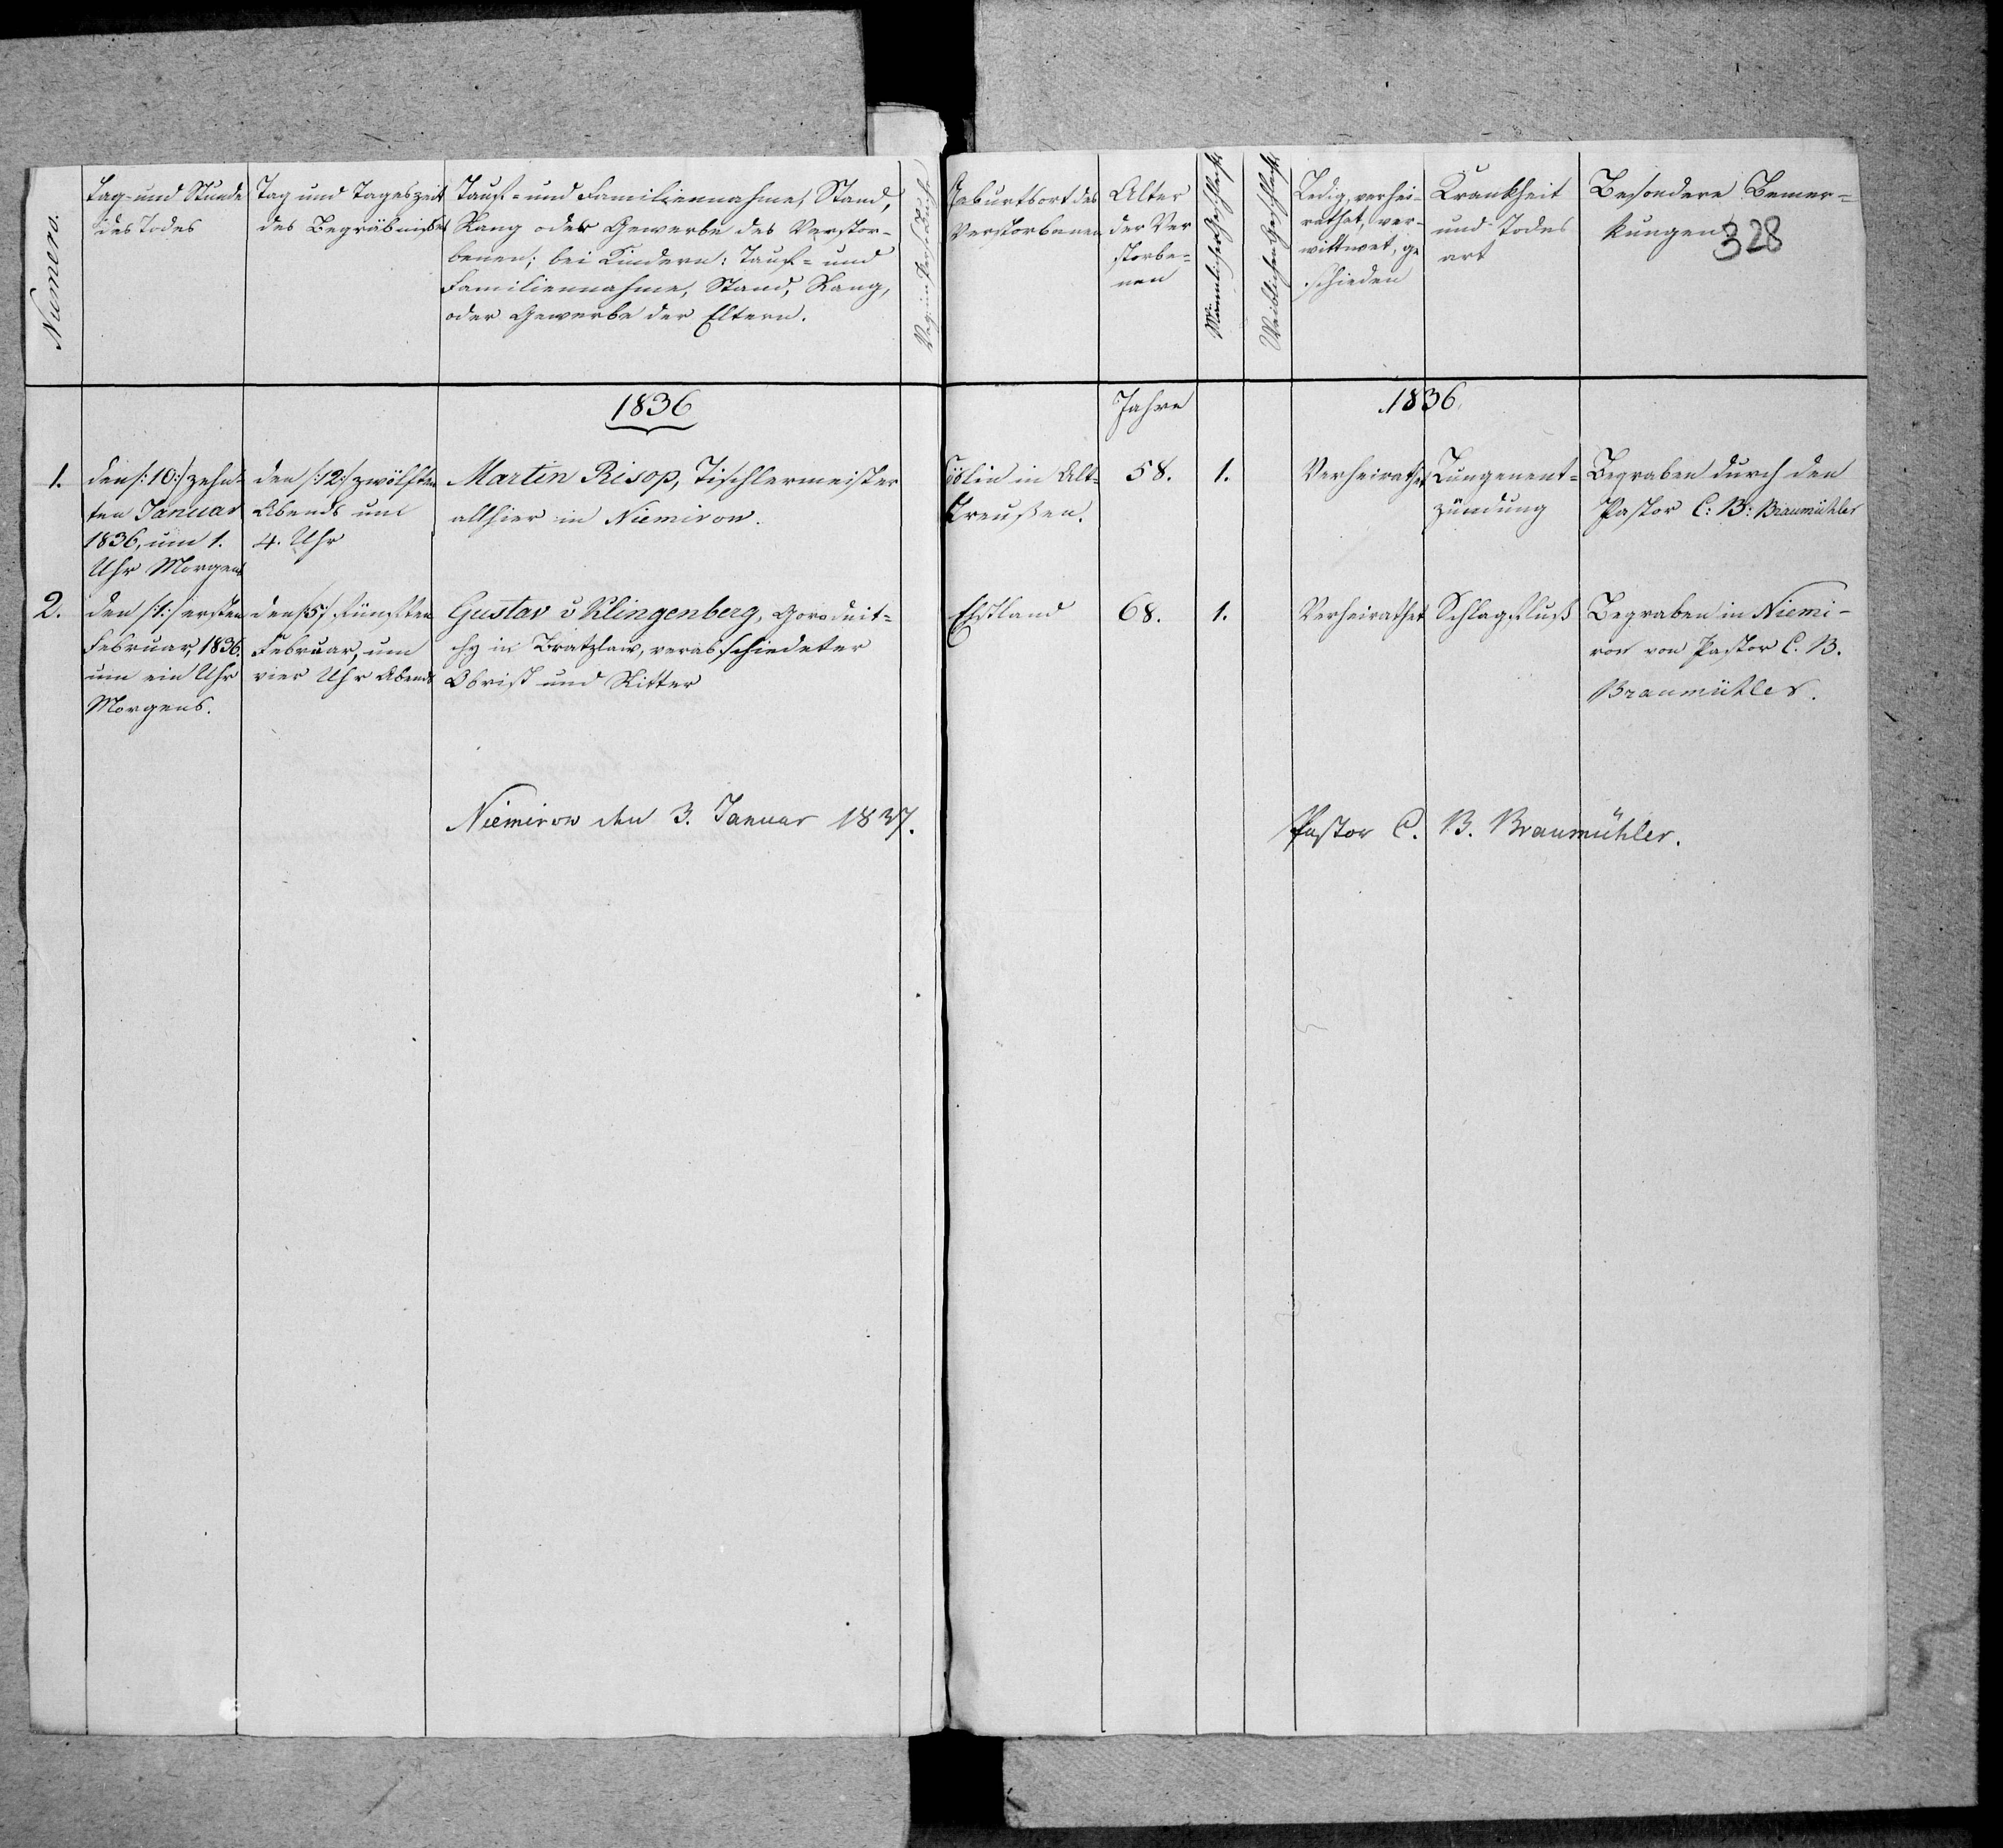 Numero.
Tag und Stunde
des Todes
Tag und Tageszeit
des Begräbnisses
Tauf= und Familiennahme, Stand,
Rang oder Gewerbe des Verstor-
benen; bei Kindern: Tauf= und
Familiennahme, Stand, Rang,
oder Gewerbe der Eltern.
Geburtsort des
Verstorbenen
Alter
der Ver
storbe=
nen
Männlichen Geschlechts
Weiblichen Geschlechts
Ledig, verhei-
rathet, ver-
wittwet, ge
schieden
Krankheit
und Todes
art
Besondere Bemer=
kungen
328
1836
Jahre
1836.
1.
den /:10:/ zehn-
ten Januar
1836, um 1.
Uhr Morgens
den /:12:/ zwölften
Abends um
4. Uhr
Martin Risop, Tischlermeister
allhier in Niemirow.
Cöslin in Alt=
Preußen.
58.
1.
Verheirathet
Lungenent=
zündung
Begraben durch den
Pastor C: B: Braumühler
2.
den /:1:/ ersten
Februar, 1836.
um ein Uhr
Morgens.
den /:5:/ fünften
Februar, um
vier Uhr Abends
Gustav v Klingenberg, Gorodnit=
schy in Bratzlaw, verabschiedeter
Obrist und Ritter
Ehstland
68.
1.
Verheirathet
Schlagfluß
Begraben in Niemi-
row von Pastor C. B.
Braumühler.
Niemirow den 3. Januar 1837.
Pastor C. B. Braumühler.